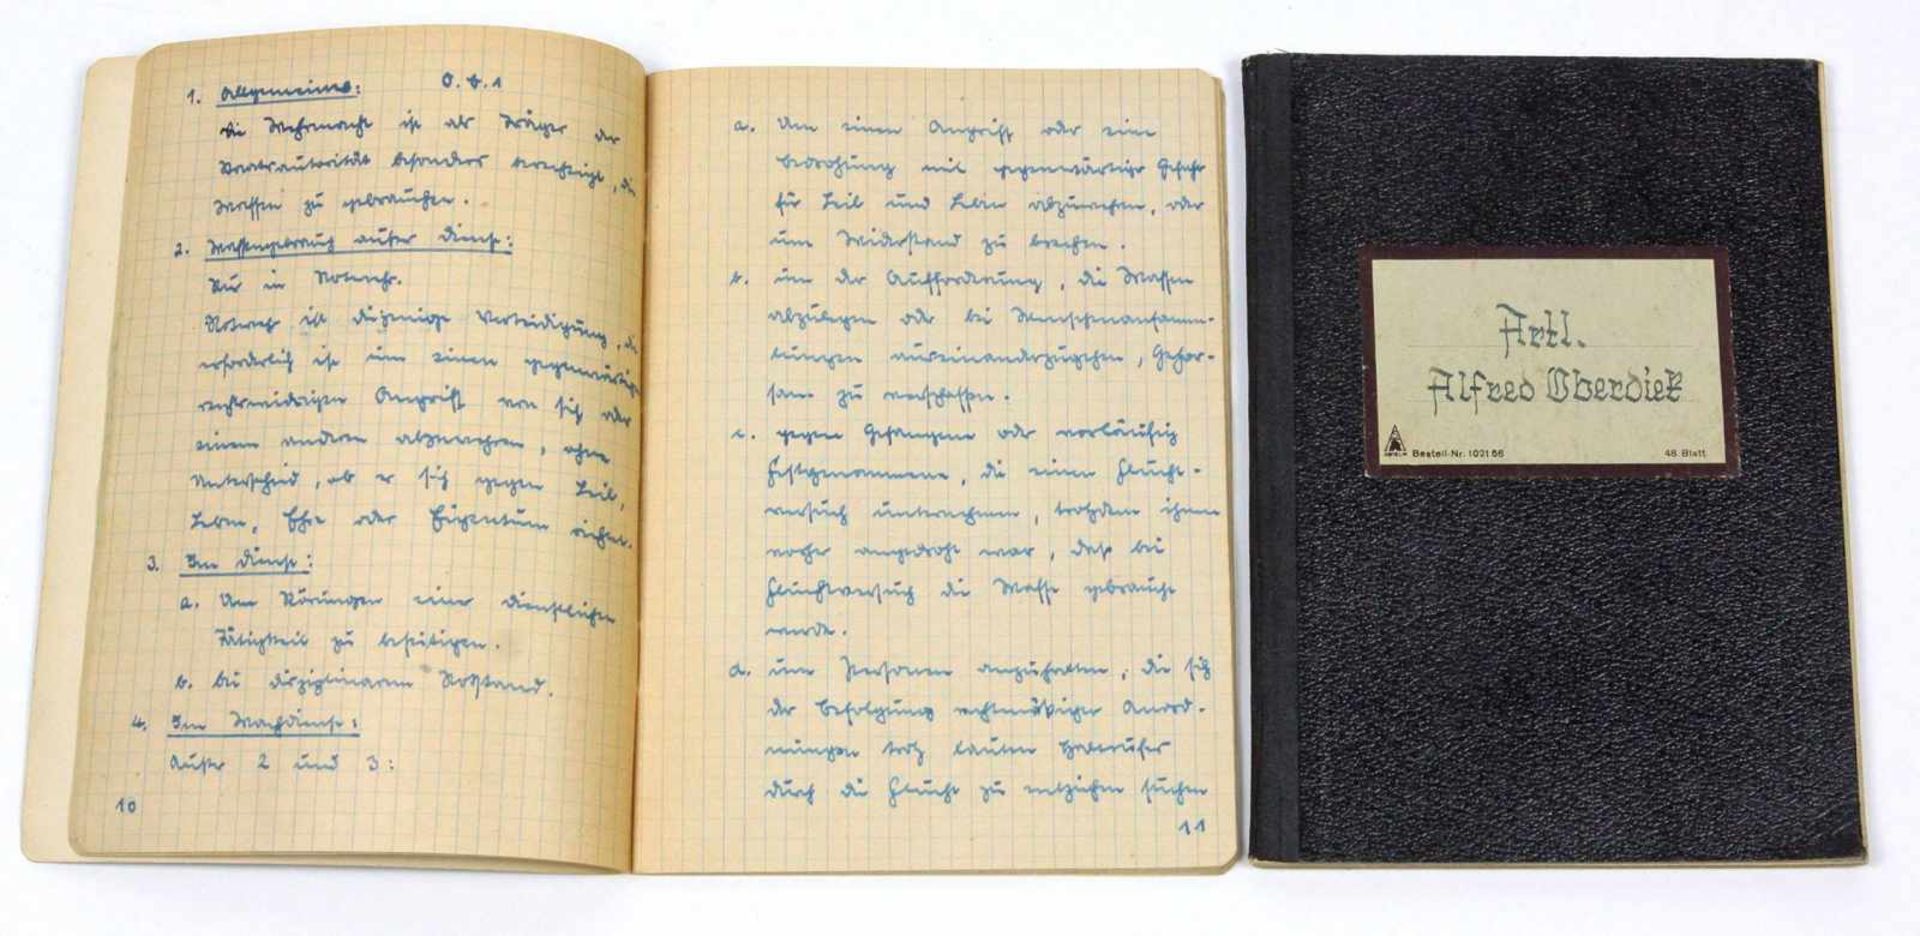 1. Allgemeines: O.b.1
Die Wehrmacht ist als Träger der
Staatsautorität besonders berechtigt, die
Waffen zu gebrauchen.
2. Waffengebrauch außer Dienst:
Nur in Notwehr.
Notwehr ist diejenige Verteidigung, die
erforderlich ist um einen gegenwärtigen
rechtswidrigen Angriff von sich oder
einem anderen abzuwehren, ohne
Unterschied, ob er sich gegen Leib,
Leben, Ehre oder Eigentum richtet.
3. Im Dienst:
a. Um Störungen einer dienstlichen
Tätigkeit zu beseitigen.
b. bei disziplinarem Notstand.
4. Im Wachdienst:
Außer 2 und 3:
10
a. Um einen Angriff oder eine
Bedrohung mit gegenwärtiger Gefahr
für Leib und Leben abzuwehren, oder
um Widerstand zu brechen.
b. um der Aufforderung, die Waffen
abzulegen oder bei Menschenansamm-
lungen auseinanderzugehen, Gehor-
sam zu verschaffen.
c. gegen Gefangene oder vorläufig
Festgenommene, die einen Flucht-
versuch unternehmen, trotzdem ihnen
vorher angedroht war, daß bei
Fluchtversuch die Waffe gebraucht
werde.
d. um Personen anzuhalten, die sich
der Befolgung rechtmäßiger Anord-
nungen trotz lauten Halterufes
durch die Flucht zu entziehen suchen
11
Artl.
Alfred Oberdiek
Bestell-Nr. 1021 66 48 Blatt